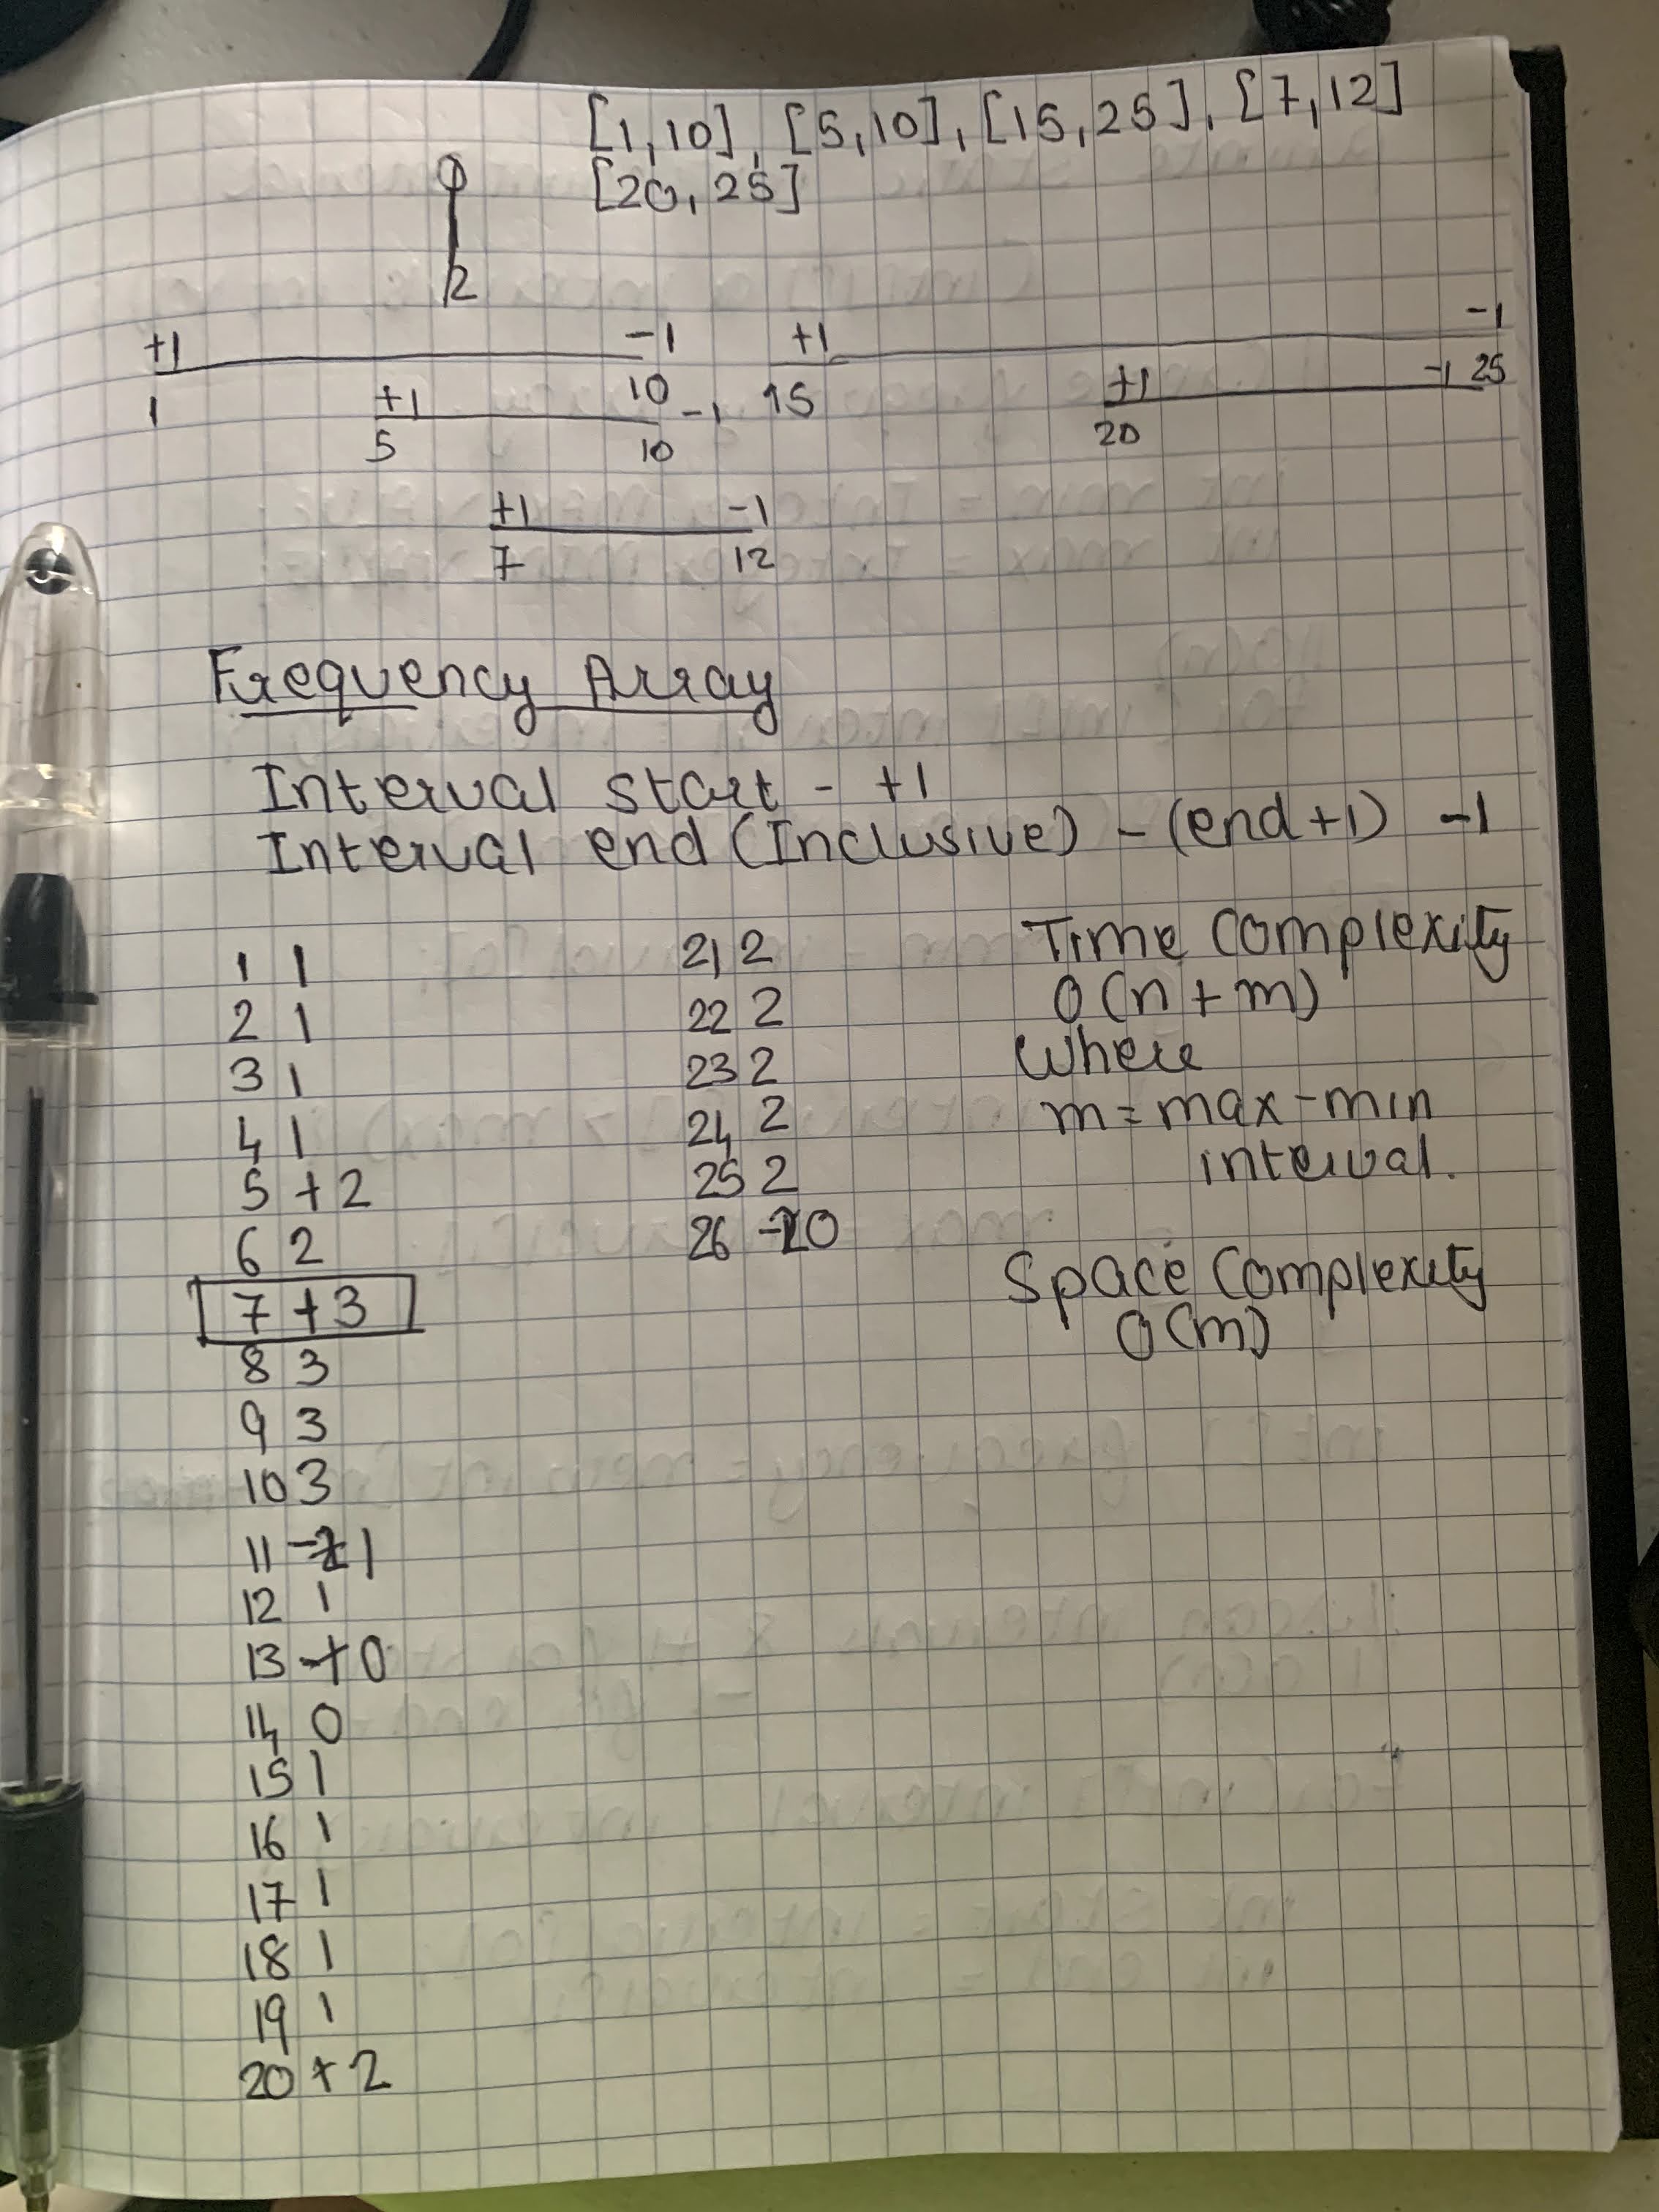 [1,10], [5,10], [15,25], [7,12]
[20,25]
2
+1 -1 +1 -1
1 10 15 25
+1 -1 +1 -1
5 10 20
+1 -1
7 12
Frequency Array
Interval start - +1
Interval end (Inclusive) - (end+1) -1
1 1
2 1
3 1
4 1
5 +2
6 2
7 +3
8 3
9 3
10 3
11 1
12 1
13 0
14 0
15 1
16 1
17 1
18 1
19 1
20 +2
21 2
22 2
23 2
24 2
25 2
26 0
Time Complexity
O(n+m)
Where
m = max-min
interval.
Space Complexity
O(m)